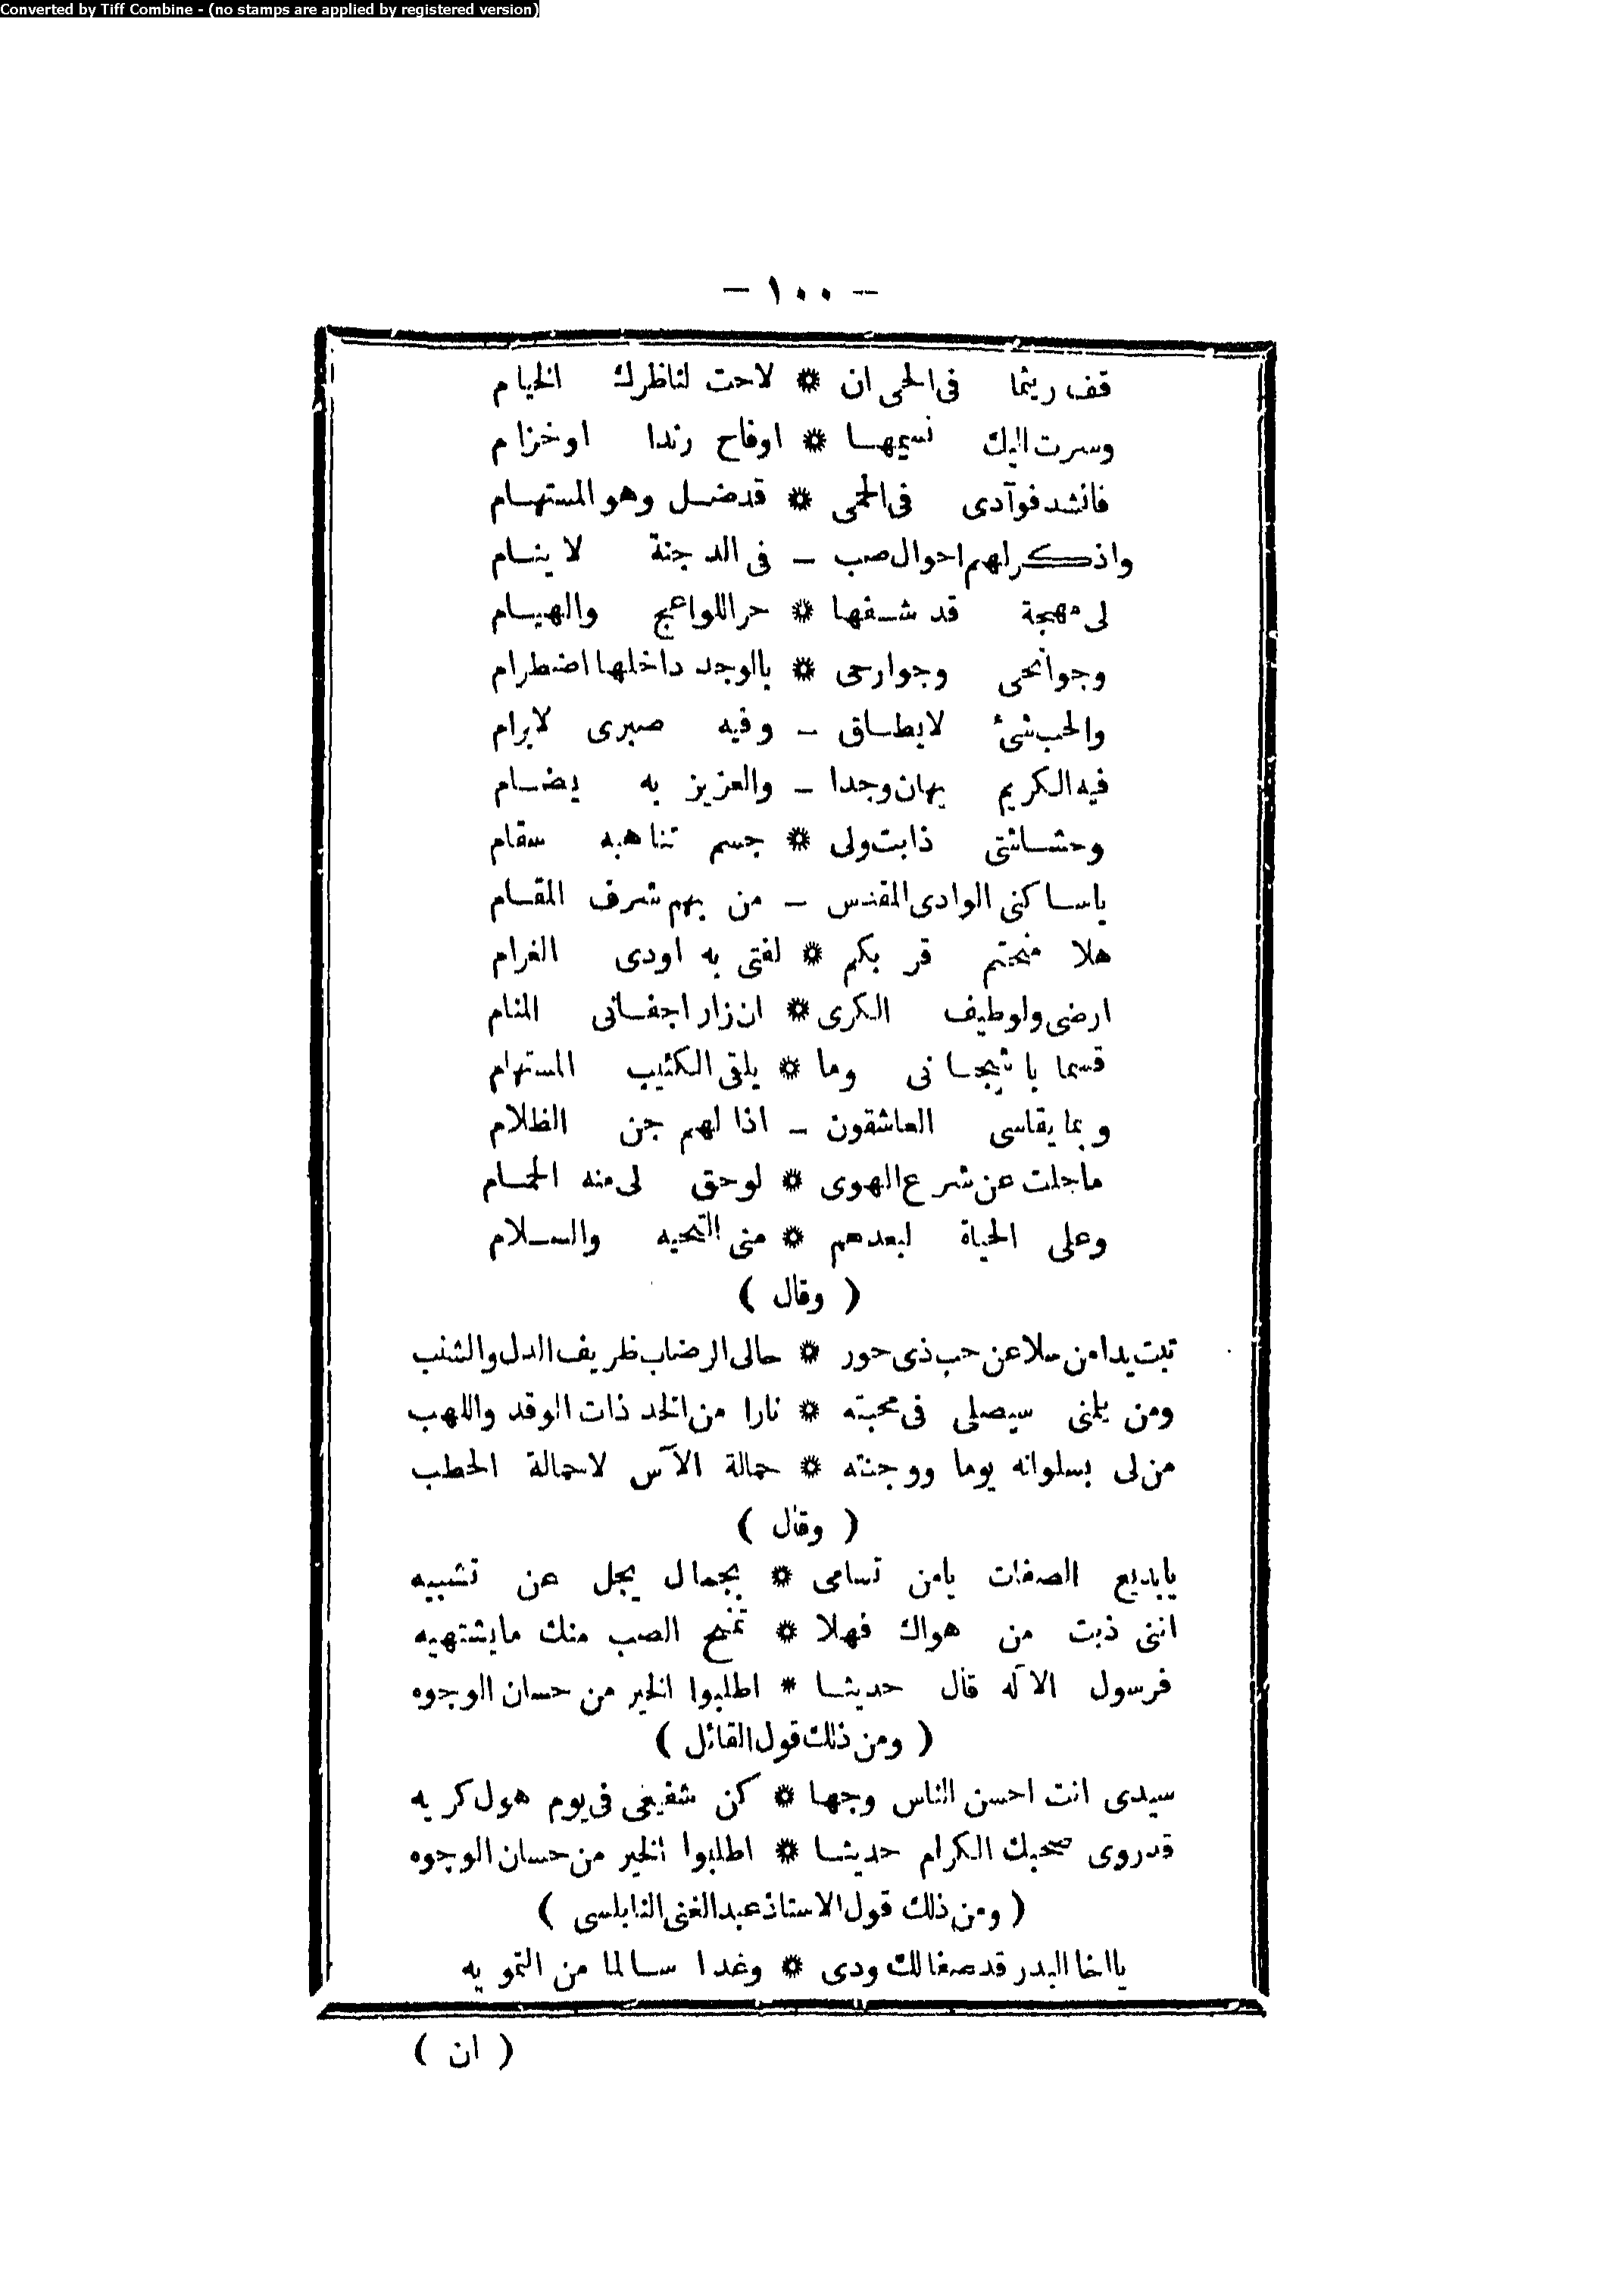 Converted by Tiff Combine - (no stamps are applied by registered version)
- ١٠٠ -
قف ريثما فى الحى ان * لاحت لناظرك الخيام
وسرت اليك نسيمها * اوفاح رندا اوخزام
فانشد فوآدى فى الحمى * قد ضل وهو المستهام
واذكر لهم احوال صب - فى الدجنة لا ينام
لى مهجة قد شفها * حر اللواعج والهيام
وجوانحى وجوارحى * بالوجد داخلها اضطرام
والحب شئ لايطاق - وفيه صبرى لايرام
فيه الكريم يهان وجدا - والعزيز به يضام
وحشاشتى ذابت ولى * جسم تناهبه سقام
ياساكنى الوادى المقدس - من بهم شرف المقام
هلا منحتم قربكم * لفتى به اودى الغرام
ارضى ولو طيف الكرى * ان زار اجفانى المنام
قسما باشجانى وما * يلقى الكئيب المستهام
وبما يقاسى العاشقون - اذا لهم جن الظلام
ماحلت عن شرع الهوى * لوحق لى منه الحمام
وعلى الحياة لبعدهم * منى التحيه والسلام
( وقال )
تبت يدا من سلا عن حب ذى حور * حالى الرضاب ظريف الدل والشنب
ومن يلمنى سيصلى فى محبته * نارا من الخد ذات الوقد واللهب
من لى بسلوانه يوما ووجنته * حمالة الآس لاحمالة الحطب
( وقال )
يابديع الصفات يامن تسامى * بجمال يجل عن تشبيه
اننى ذبت من هواك فهلا * تمنح الصب منك مايشتهيه
فرسول الاآله قال حديثا * اطلبوا الخير من حسان الوجوه
( ومن ذلك قول القائل )
سيدى انت احسن الناس وجها * كن شفيعى فى يوم هول كريه
قدروى صحبك الكرام حديثا * اطلبوا الخير من حسان الوجوه
( ومن ذلك قول الاستاذ عبد الغنى النابلسى )
يااخا البدر قد صفا لك ودى * وغدا سالما من التمويه
( ان )